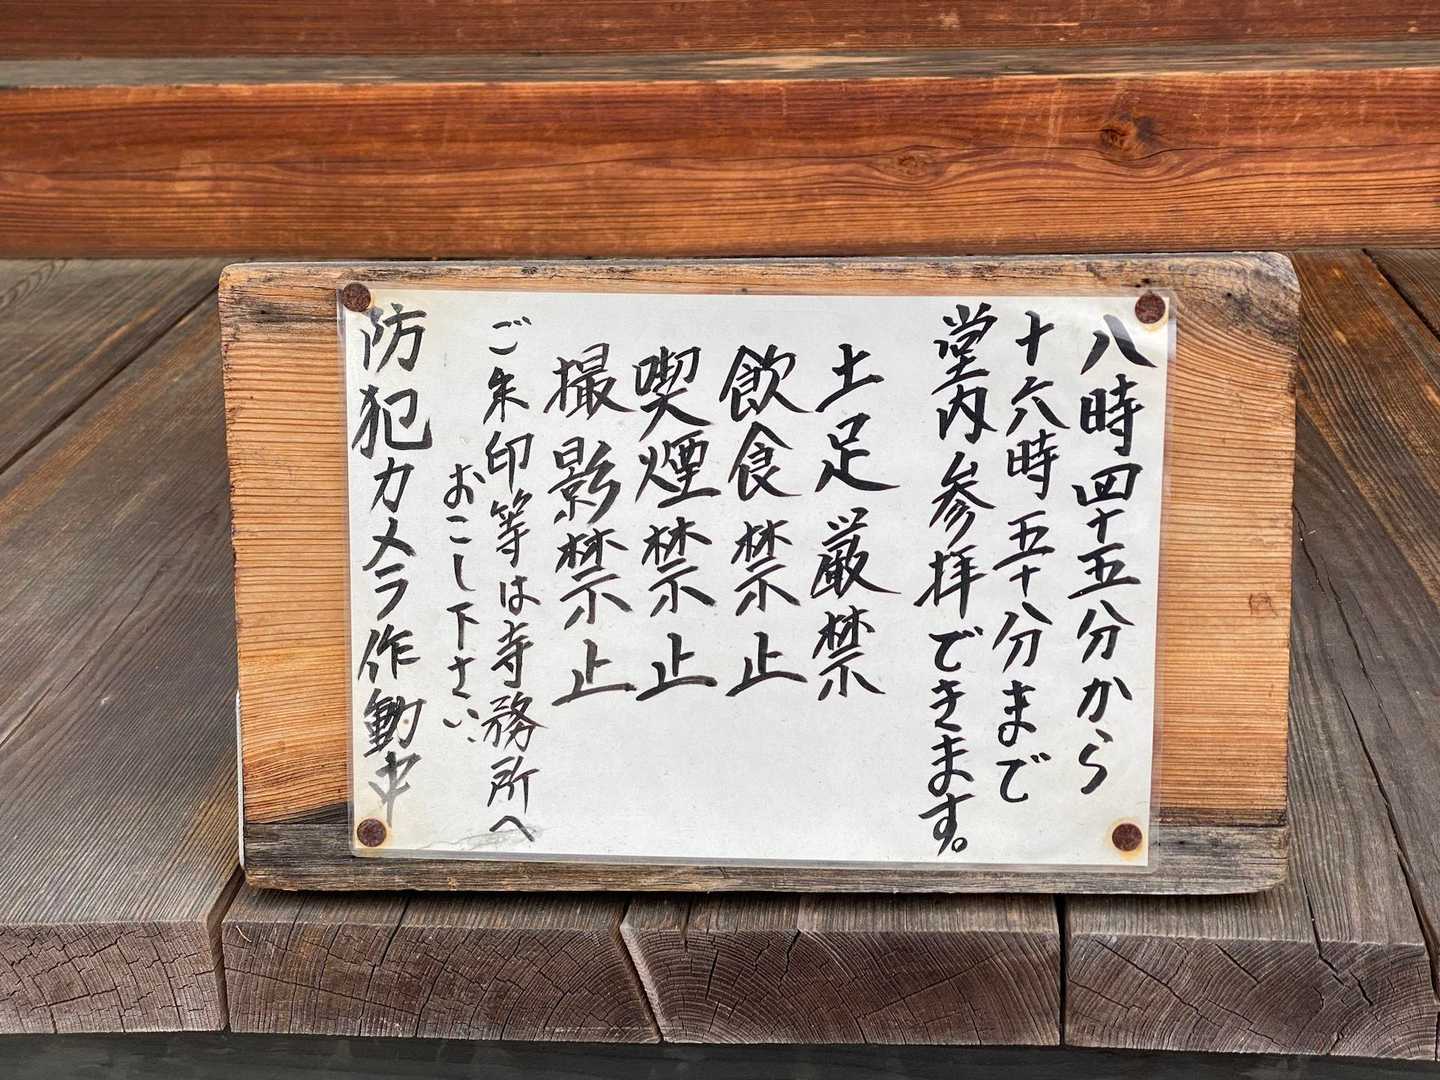 八時四十五分から
十六時五十分まで
堂内参拝できます。
土足厳禁
飲食禁止
喫煙禁止
撮影禁止
ご朱印等は寺務所へ
おこし下さい。
防犯カメラ作動中